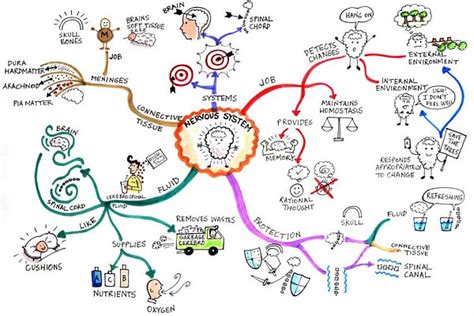 NERVOUS SYSTEM
SYSTEMS
BRAIN
SPINAL
CHORD
JOB
DETECTS
CHANGES
HANG ON
EXTERNAL
ENVIRONMENT
INTERNAL
ENVIRONMENT
UGH!
I DON'T
FEEL WELL
RESPONDS
APPROPRIATELY
TO CHANGE
SAVE
THE
TREES
MAINTAINS
HOMOSTASIS
PROVIDES
MEMORY
RATIONAL
THOUGHT
PROTECTION
SKULL
FLUID
REFRESHING
CONNECTIVE
TISSUE
SPINAL
CANAL
FLUID
CEREBROSPINAL
FLUID
BRAIN
SPINAL CORD
LIKE
CUSHIONS
SUPPLIES
A B C
NUTRIENTS
OXYGEN
REMOVES WASTES
GARBAGE
CONNECTIVE
TISSUE
MENINGES
JOB
M
SKULL
BONES
BRAINS
SOFT TISSUE
DURA
HARDMATTER
ARACHNOID
PIA MATTER